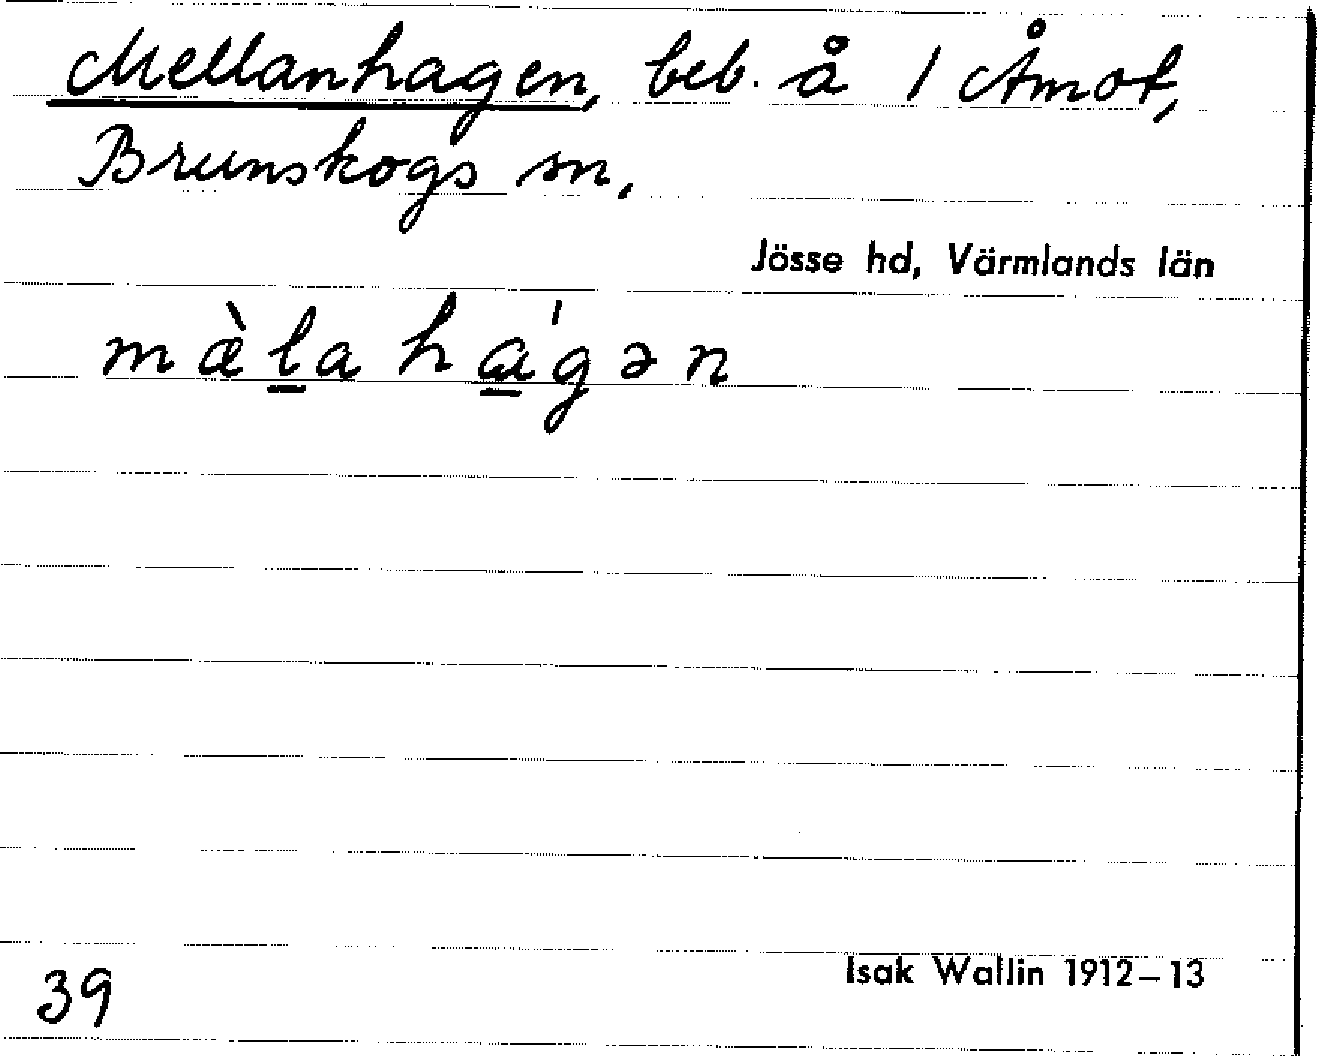 Mellanhagen, beb. å 1 Åmot,
Brunskogs sn,
Jösse hd, Värmlands län
mæ̀l̲a há̲gən
Isak Wallin 1912–13
39